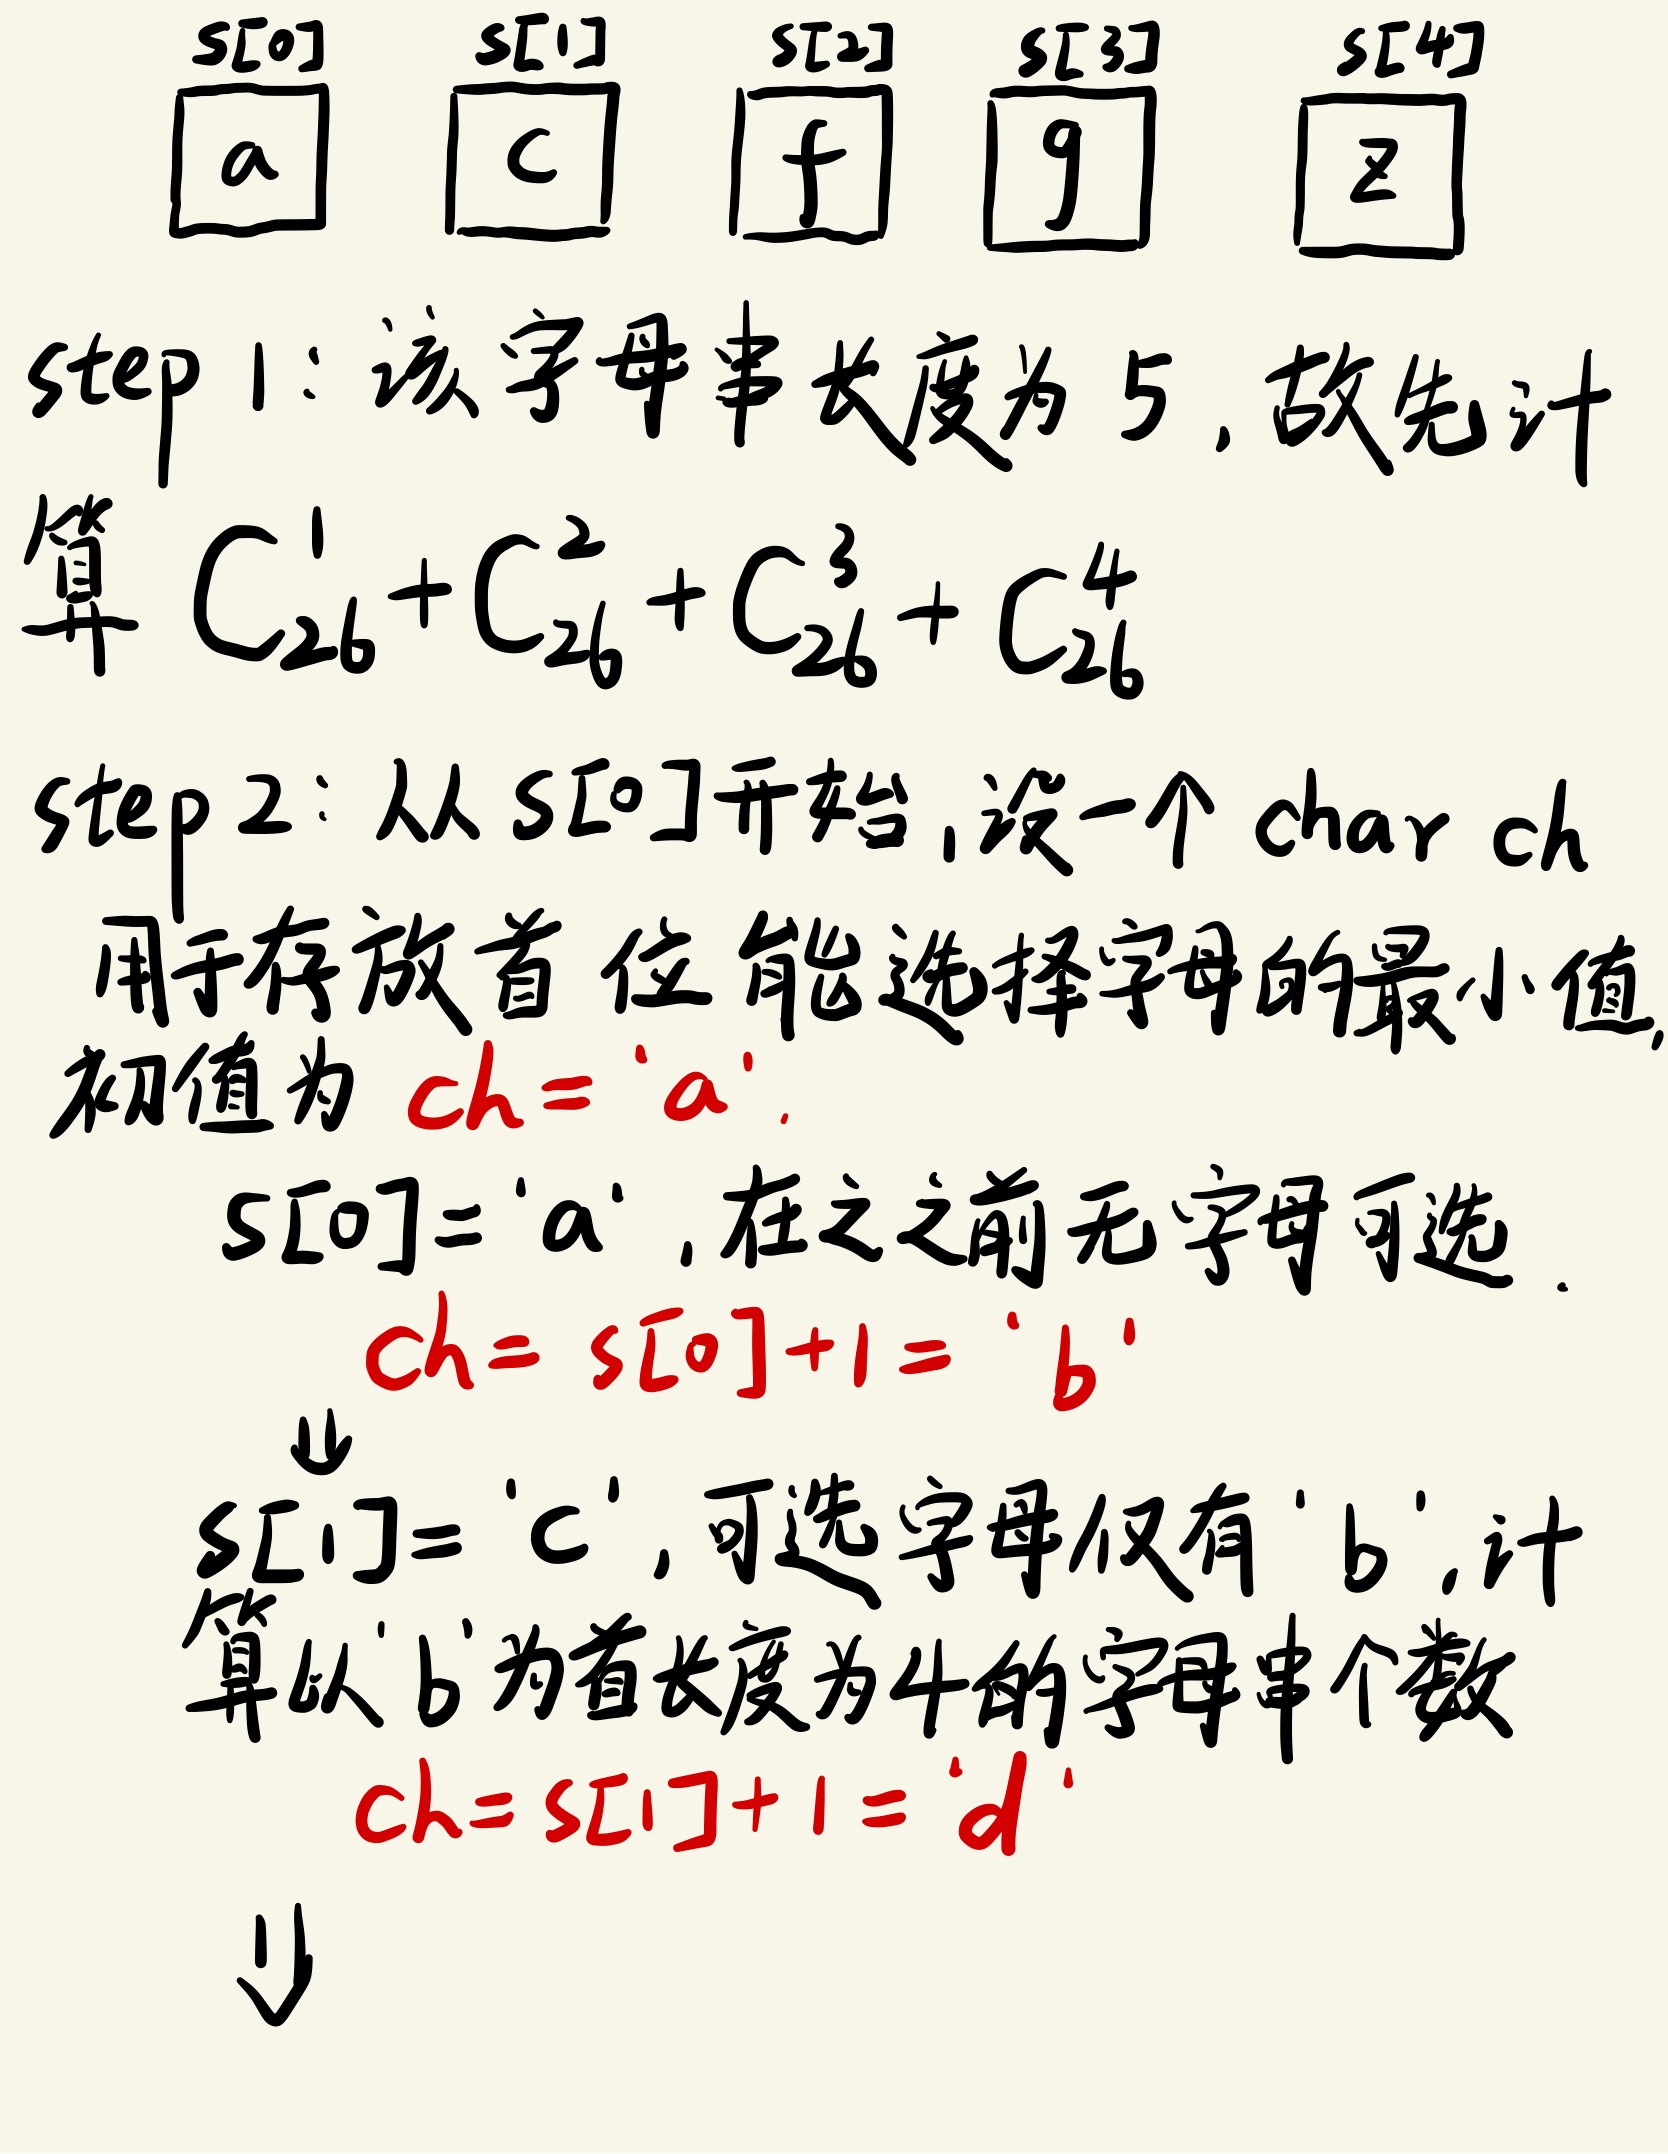 s[0] s[1] s[2] s[3] s[4]
a c f g z
step 1: 该字母串长度为5, 故先计
算 C₂₆¹ + C₂₆² + C₂₆³ + C₂₆⁴
step 2: 从s[0]开始, 设一个 char ch
用于存放首位能选择字母的最小值,
初值为 ch = 'a'.
s[0] = 'a', 在之之前无字母可选.
ch = s[0] + 1 = 'b'
⇓
s[1] = 'c', 可选字母仅有 'b', 计
算以'b'为首长度为4的字母串个数
ch = s[1] + 1 = 'd'
⇓